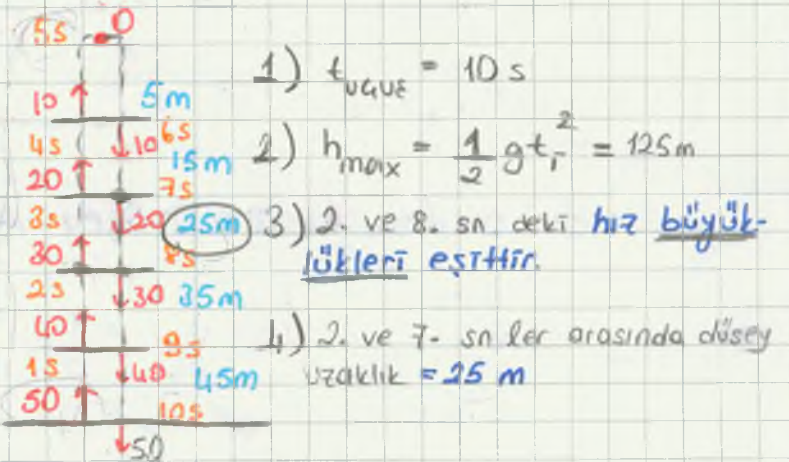 5s 0
10 5m
4s 10 6s
15m
20 7s
3s 20 25m
30 8s
2s 30 35m
40 9s
1s 40 45m
50 10s
50
1) t_uçuş = 10 s
2) h_max = 1/2 g t_i^2 = 125m
3) 2. ve 8. sn deki hız büyük-
lükleri eşittir.
4) 2. ve 7. sn ler arasında düşey
uzaklık = 25 m